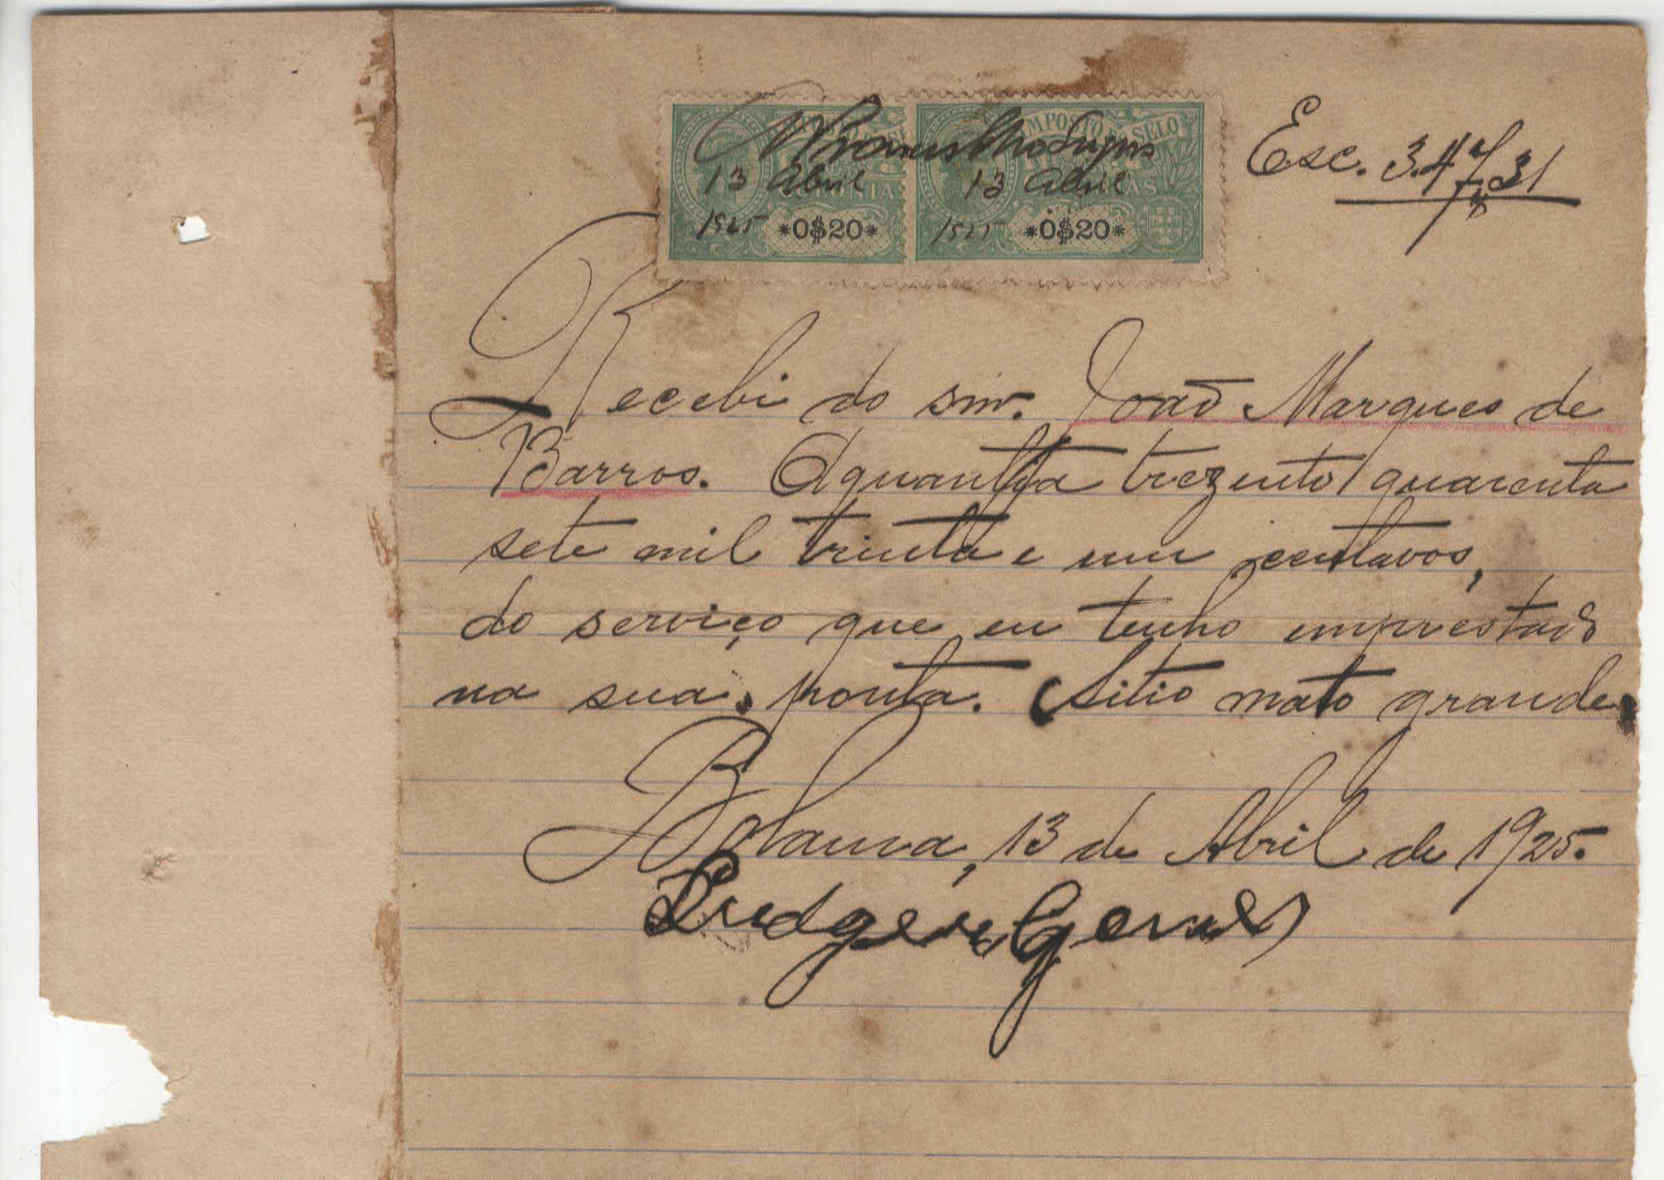 IMPOSTO SELO
13 Abril 13 Abril
1925 *0$20* 1925 *0$20*
Esc. 347,31
Recebi do snr. João Marques de
Barros. Aquantia trezento quarenta
sete mil trinta e um centavos,
do serviço que eu tenho imprestado
na sua, ponta. Sitio mato grande,
Bolama, 13 de Abril de 1925.
Gomes